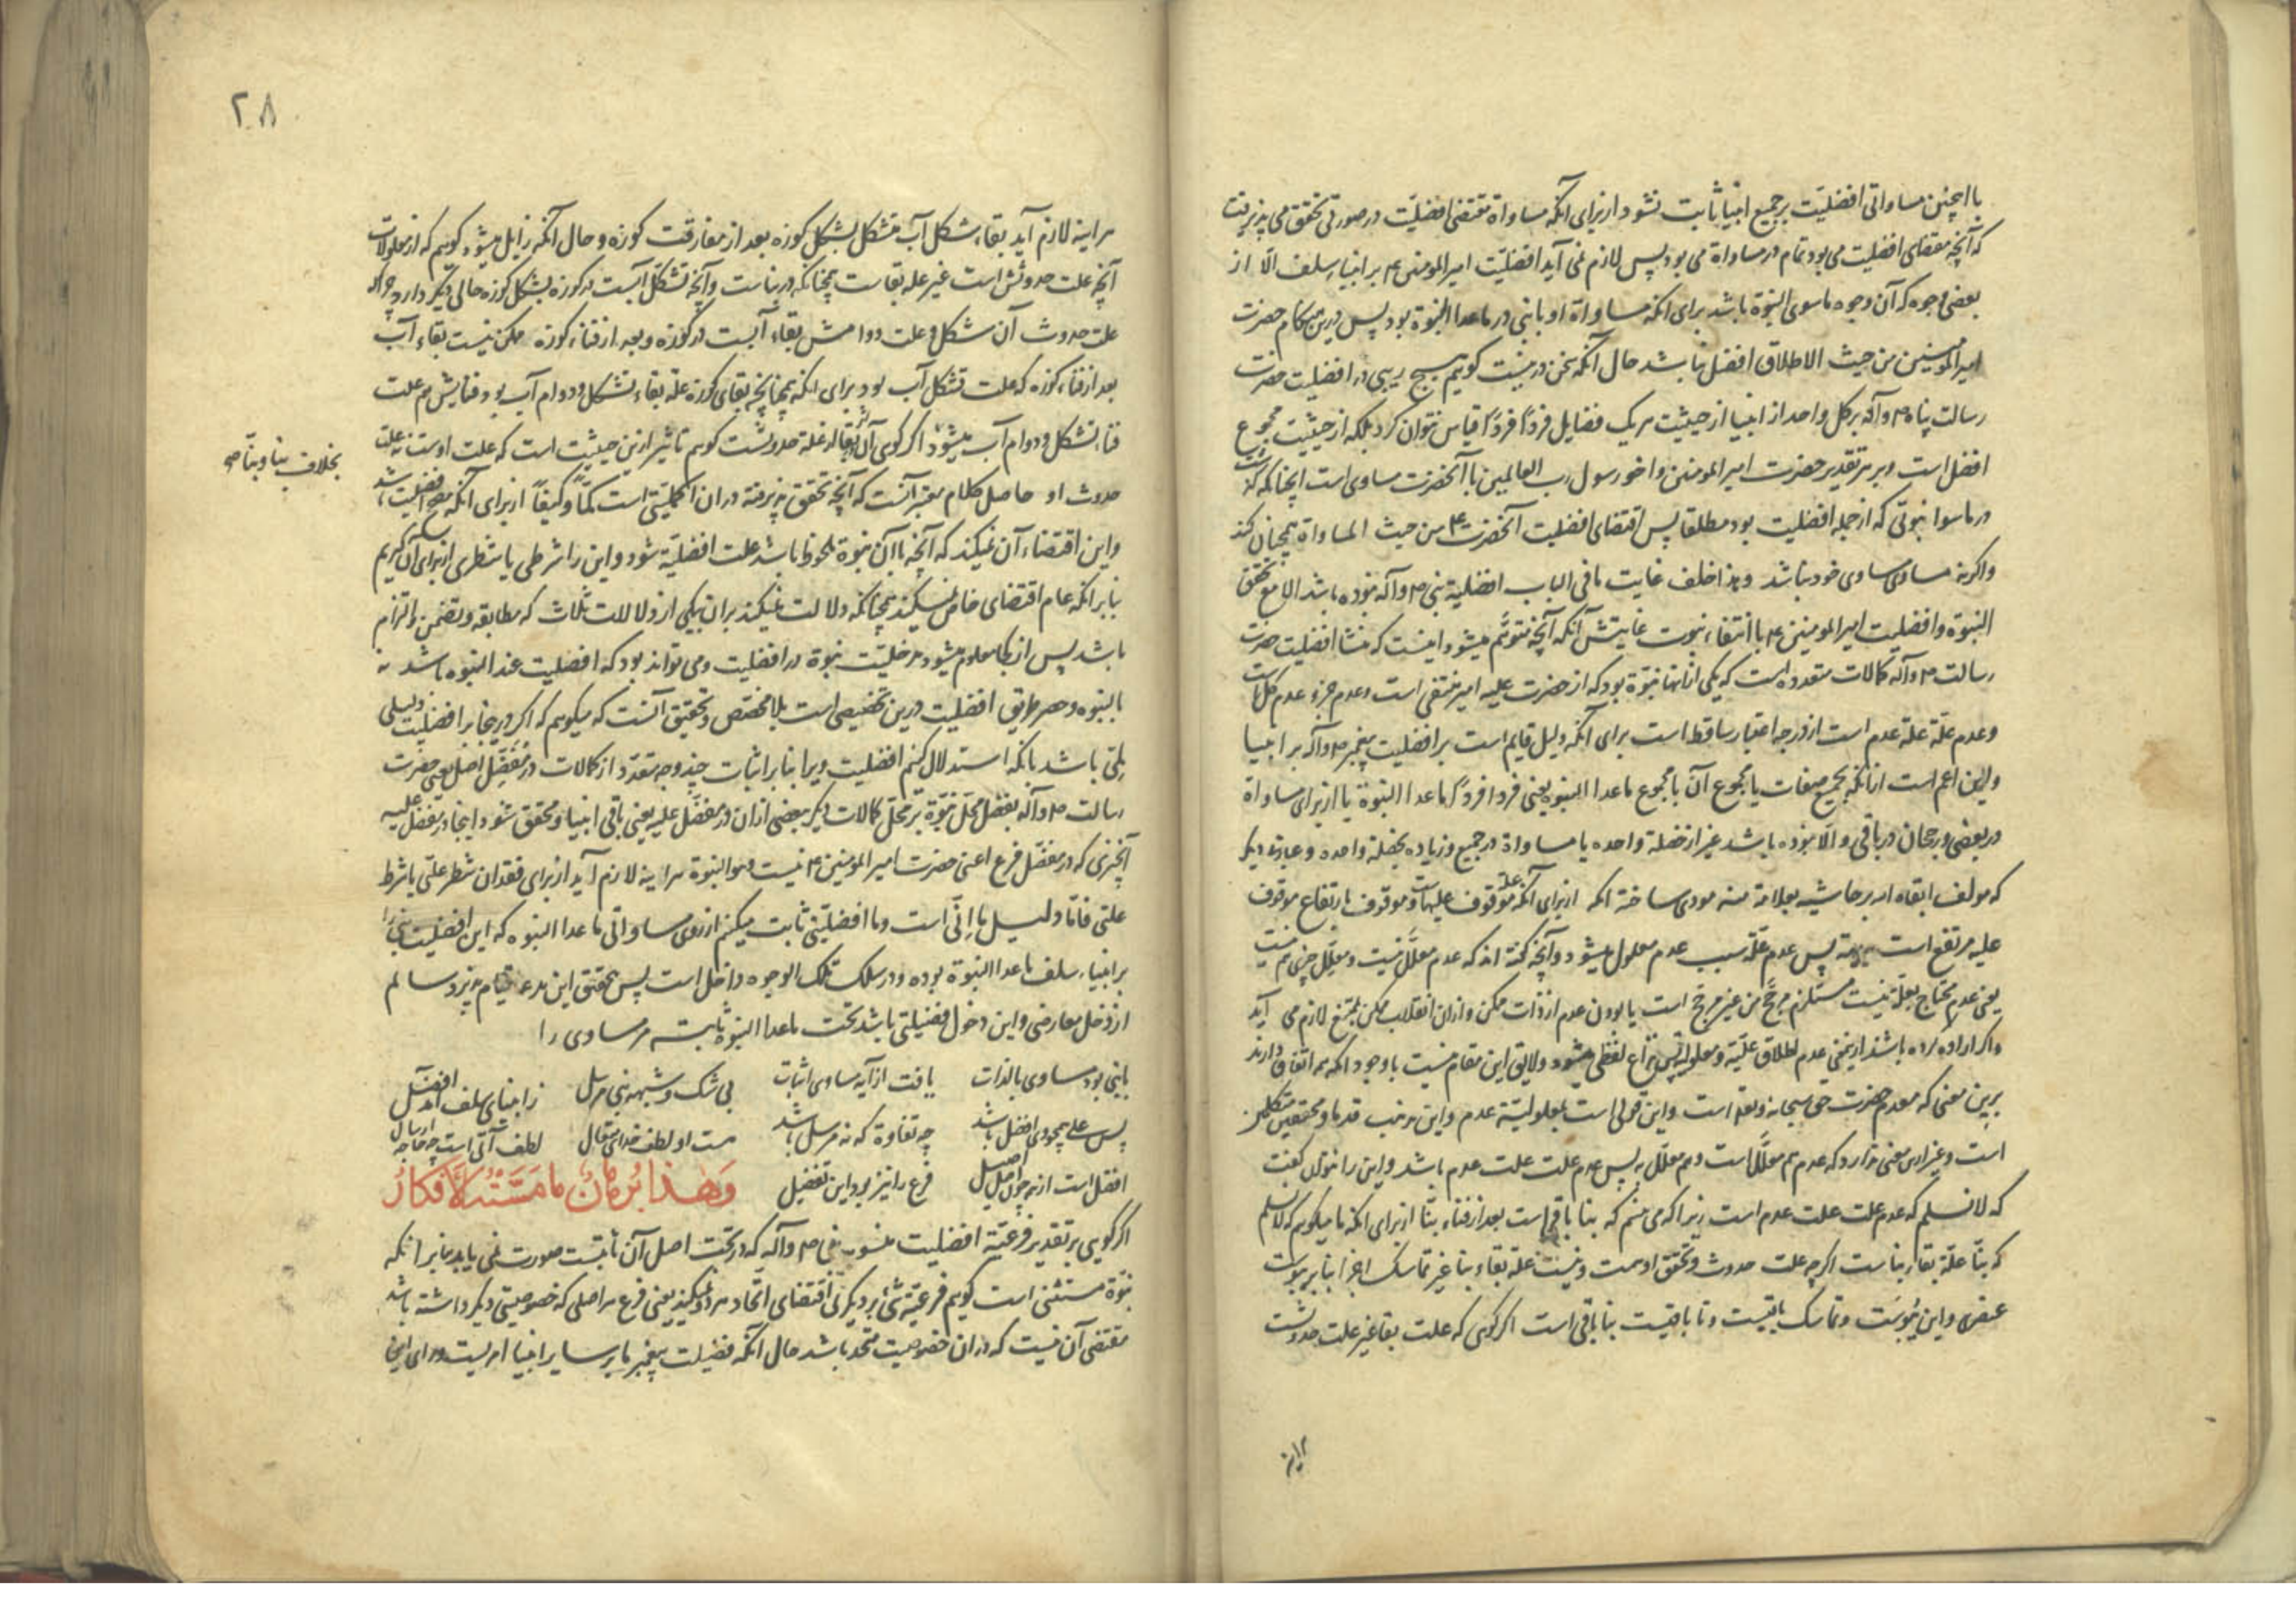 با اینچنین مساواتی افضلیّت بر جمیع انبیا ثابت نشود از برای آنکه مساواة مقتضی افضلیّت در صورتی تحقق می پذیرفت
که آنچه مقتضای افضلیت می بود تمام در مساواة می بود پس لازم نمی آید افضلیّت امیرالمومنین ع بر انبیاء سلف الّا از
بعضی وجوه که آن وجوه ماسوی النبوة باشد برای انکه مساواة او با نبی در ماعدا النبوة بود پس درین هنکام حضرت
امیرالمومنین من حیث الاطلاق افضل نباشد حال آنکه سخن درینست کوییم هیچ ریبی در افضلیت حضرت
رسالت پناه ص وآله بر کل واحد از انبیا از حیثیت هر یک فضایل فردًا فردًا قیاس نتوان کرد بلکه از حیثیت مجموع
افضل است و بر هر تقدیر حضرت امیرالمومنین و اخو رسول رب العالمین با آنحضرت مساوی است
در ماسوا نبوتی که از جمله افضلیت بود مطلقا پس اقتضای افضلیت آنحضرت ع من حیث المساواة همچنان کند
واکر نه مساوی مساوی خود نباشد و هذا خلف غایت مافی الباب افضلیة نبی ص وآله نبوده باشد الا مع تحقق
النبوة و افضلیت امیرالمومنین ع با انتفاء نبوت غایتش آنکه آنچه متوهّم میشود اینست که منشا افضلیت حضرت
رسالت ص وآله کمالات متعدده است که یکی از انها نبوة بود که از حضرت علیه امیر منتفی است و عدم جزء عدم کل است
وعدم علّة علة عدم است از درجه اعتبار ساقط است برای آنکه دلیل قایم است بر افضلیت پیغمبر ص وآله بر انبیا
واین اعم است ازانکه بجمیع صفات یا مجموع آن با مجموع ماعدا النبوه یعنی فردا فردًا ماعدا النبوة یا از برای مساواة
در بعضی و رجحان در باقی و الّا نبوده باشد غیر از خصلة واحده یا مساواة در جمیع و زیاده بخصلة واحده و عبارة دیکر
که مولف ابقاه الله بر حاشیه بعلامة منه مودی ساخته انکه از برای آنکه علة موقوف علیهاست و موقوف بارتفاع موقوف
علیه مرتفع است پس عدم علّة سبب عدم معلول میشود و آنچه کفته اند که عدم معلّل نیست و معلّل چیزی هم نیست
یعنی عدم محتاج بعلّة نیست مستلزم مرجّح من غیر مرجّح است یا بودن عدم از ذات ممکن و ازان انقلاب ممکن بممتنع لازم می آید
واکر اراده کرده باشند ازین معنی عدم اطلاق علیّة و معلولیّة پس نزاع لفظی میشود و لایق این مقام نیست با وجود انکه همه اتفاق دارند
برین معنی که معدم حضرت حق سبحانه و تعالی است و این قولی است بمعلولیّة عدم و این مذهب قدما و محققین متکلمین
است و غیر ازین معنی ندارد که عدم هم معلّل است و هم معلّل به پس عدم علت علت عدم باشد و این را نتوان کفت
که لانسلم که عدم علت علت عدم است زیرا که می بینیم که بنا باقی است بعد از فناء بنّا از برای انکه ما میکوییم که لانسلم
که بنّا علّة بقاء بناست اکر چه علت حدوث و تحقق اوست و نیست علة بقاء بنا غیر تماسک اجزا بنا بر یبوست
عنصری و این یبوست و تماسک باقیست و تا باقیست بنا باقی است اکر کوی که علت بقا غیر علت حدوثست
۲۸
هر اینه لازم آید بقاء شکل آب متشکل بشکل کوزه بعد از مفارقت کوزه و حال آنکه زایل میشود کوییم که از معلولات
آنچه علت حدوثش است غیر علة بقاست همچنانکه در بناست و آنچه تشکل آبست در کوزه بشکل کوزه حالی دیکر دارد چرا که
علت حدوث آن شکل و علت دوامش بقاء آبست در کوزه و بعد از فناء کوزه ممکن نیست بقاء آب
بعد از فناء کوزه که علت تشکل آب بود برای انکه همچنانچه بقای کوزه علة بقاء تشکل و دوام آب بود فنایش هم علت
فناء تشکل و دوام آب میشود اکر کوی
بخلاف بنا و بنّا
حدوث او حاصل کلام معتبر آنست که آنچه تحقق پذیرفته در ان اکملیتی است کمّاً و کیفاً از برای آنکه
واین اقتضاء آن نمیکند که آنچه با آن نبوة ملحوظ باشد علت افضلیّة شود و این را شرطی یا شطری از برای آن کیریم
بنابرانکه عام اقتضای خاص نمیکند همچنانکه دلالت نمیکند بران بیکی از دلالات ثلاث که مطابقه و تضمن و التزام
باشد پس از کجا معلوم میشود مدخلیّت نبوة در افضلیت و می تواند بود که افضلیت عند النبوه باشد نه
بالنبوه و حصر طریق افضلیت درین تخصیصی است بلا مخصّص و تحقیق آنست که میکوییم که اکر در اینجا بر افضلیت دلیلی
لمّی باشد بانکه استدلال کنیم افضلیت ویرا بنابر اثبات چند وجه متعدّد از کمالات در مفضّل اصل یعنی حضرت
رسالت ص وآله بفضل محل نبوّة بر محلّ کمالات دیکر بعضی ازان در مفضّل علیه یعنی باقی انبیا و محقق نشود اینجا در مفضّل علیه
آنچیزی که در مفضّل فرع اعنی حضرت امیرالمومنین ع نیست و هوالنبوة هراینه لازم آید از برای فقدان شطر علّتی یا شرط
علتی فامّا دلیل ما اِنّی است و ما افضلیّتی ثابت میکنیم از روی مساواتی ماعدا النبوه که این افضلیت
بر انبیاء سلف ماعدا النبوة بوده و در سلک تلک الوجوه داخل است پس تحقق این مدعا قیام پذیرد سالم
از دخل معارضی و این دخول فضیلتی باشد تحت ماعدا النبوة ثابت مر مساوی را
بانبی بود مساوی بالذات یافت از آیه مساوی اثبات بی شک و شبهه نبی مرسل ز انبیای سلف آمد افضل
پس علی همچو وی افضل باشد چه تفاوة که نه مرسل باشد هست او لطف خدای متعال لطف آنی است چه حاجه ارسال
افضل است از همه چون اصل اصیل فرع را نیز بود این تفضیل وَهٰذا بُرهانٌ ما مَسَّتْهُ الأَفكارُ
اکر کویی بر تقدیر فرعیّة افضلیت منسوب بنبی ص وآله که در تحت اصل آن ثابتست صورت نمی یابد بنابر انکه
نبوّة مستثنی است کوییم فرعیّة شئ بر دیکری اقتضای اتحاد هر دو نمیکند یعنی فرع هر اصلی که خصوصیتی دیکر داشته باشد
مقتضی آن نیست که در ان خصوصیت متحد باشد حال آنکه فضیلت پیغمبر ما بر سایر انبیا امریست ورای این